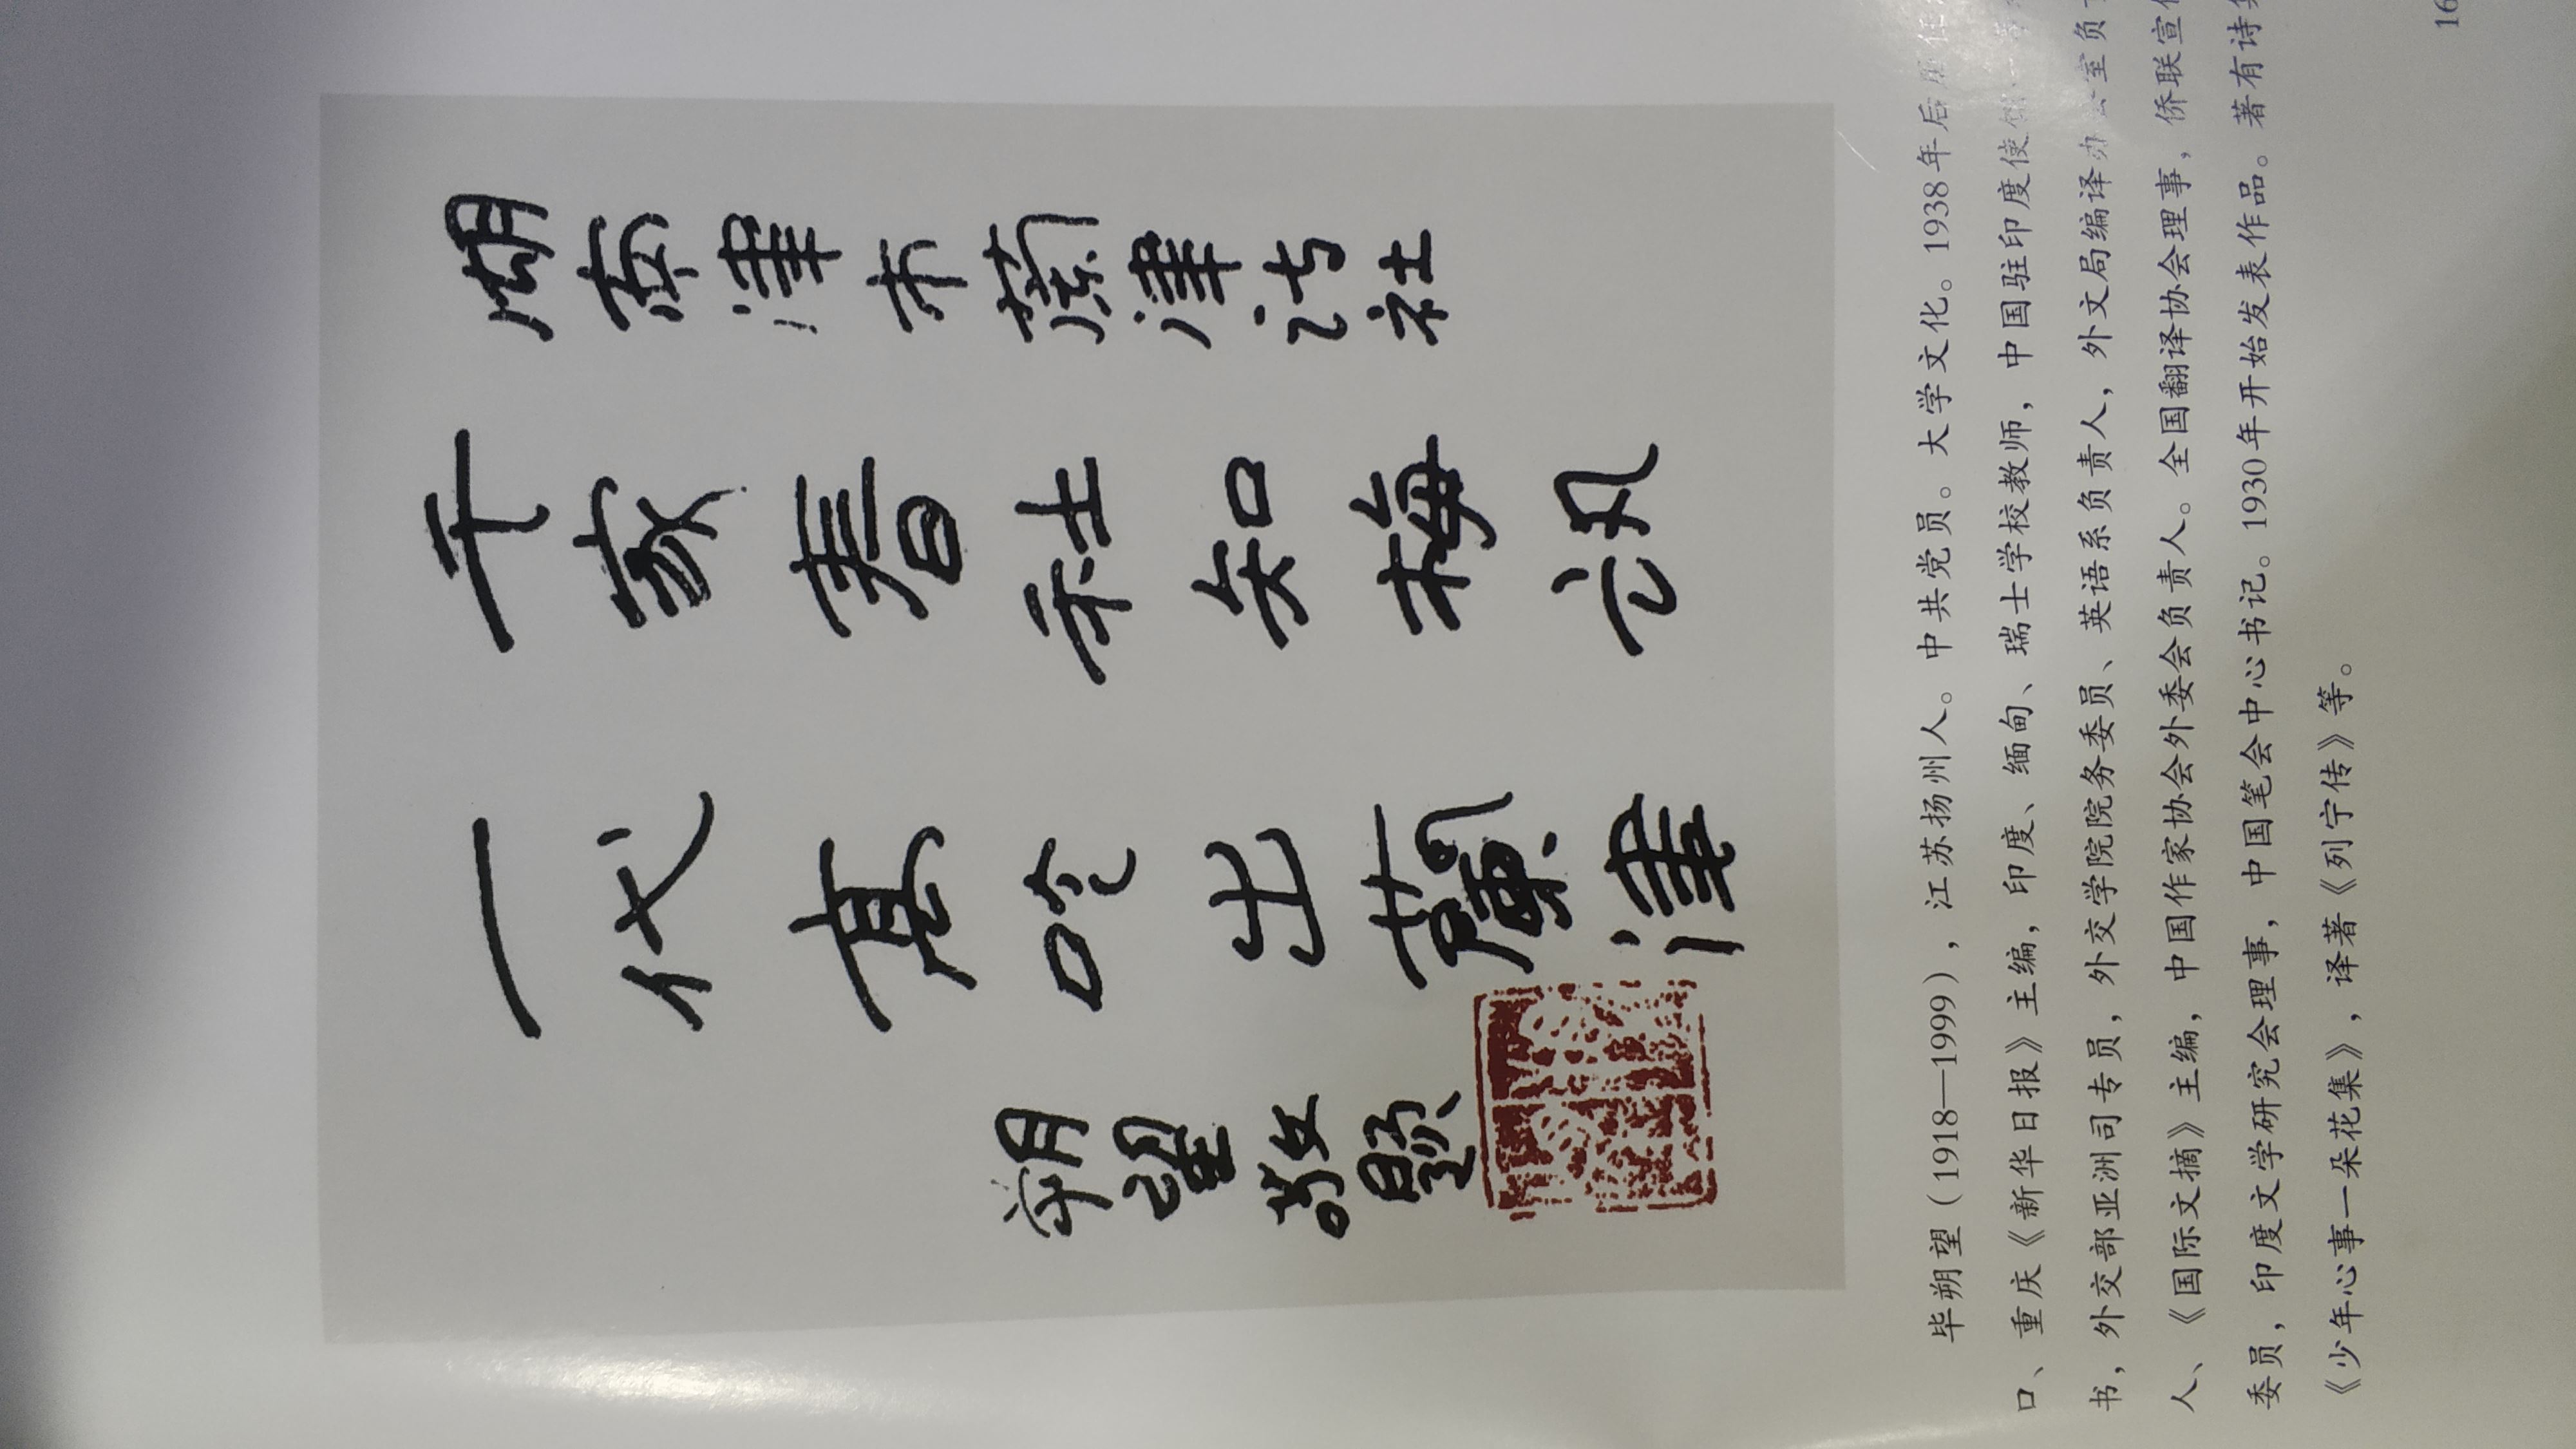 湖南津市蘭津诗社
千家春社知梅讯
一代高吟出蘭津
朔望敬题
毕朔望（1918—1999），江苏扬州人。中共党员。大学文化。1938年后历任
口、重庆《新华日报》主编，印度、缅甸、瑞士学校教师，中国驻印度使馆一等
书，外交部亚洲司专员，外交学院院务委员、英语系负责人，外文局编译办公室负
人、《国际文摘》主编，中国作家协会外委会负责人。全国翻译协会理事，侨联宣传
委员，印度文学研究会理事，中国笔会中心书记。1930年开始发表作品。著有诗集
《少年心事一朵花集》，译著《列宁传》等。
16